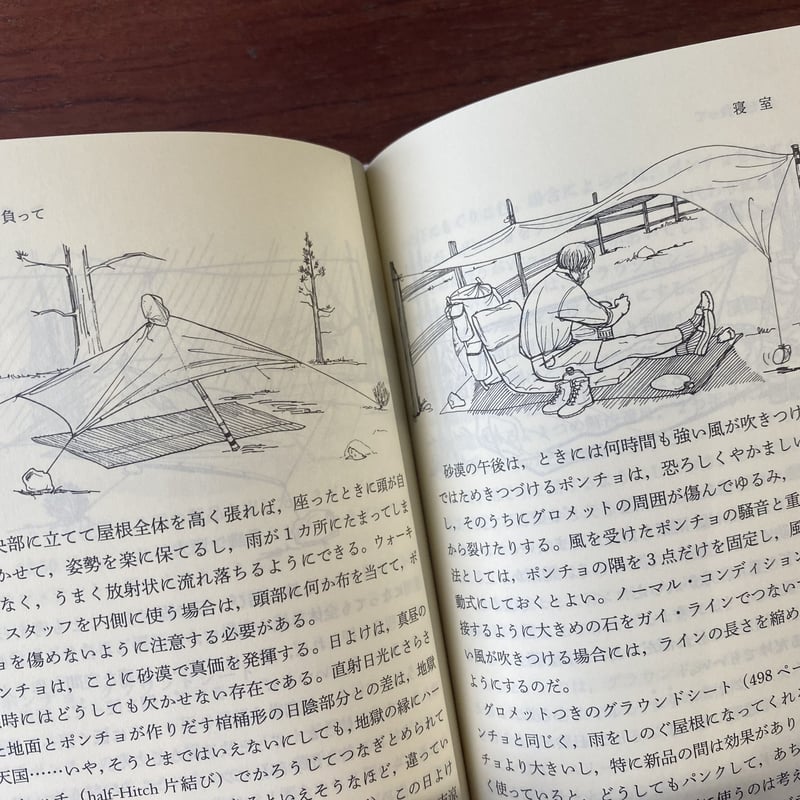 負って
央部に立てて屋根全体を高く張れば，座ったときに頭が自
かせて，姿勢を楽に保てるし，雨が1カ所にたまってしま
なく，うまく放射状に流れ落ちるようにできる。ウォーキ
スタッフを内側に使う場合は，頭部に何か布を当てて，ポ
ョを傷めないように注意する必要がある。
ンチョは，ことに砂漠で真価を発揮する。日よけは，真昼の
時にはどうしても欠かせない存在である。直射日光にさらさ
た地面とポンチョが作りだす棺桶形の日陰部分との差は，地獄
天国……いや，そうとまではいえないにしても，地獄の縁にハー
チ（half-Hitch 片結び）でかろうじてつなぎとめられて
るといえそうなほど，違ってい
この日よけ
寝室
砂漠の午後は，ときには何時間も強い風が吹きつけ
ではためきつづけるポンチョは，恐ろしくやかましい
し，そのうちにグロメットの周囲が傷んでゆるみ，
から裂けたりする。風を受けたポンチョの騒音と重
法としては，ポンチョの隅を3点だけを固定し，風
動式にしておくとよい。ノーマル・コンディション
接するように大きめの石をガイ・ラインでつないで
い風が吹きつける場合には，ラインの長さを縮め
ようにするのだ。
グロメットつきのグラウンドシート（498ペー
ンチョと同じく，雨をしのぐ屋根になってくれ
チョより大きいし，特に新品の間は効果があり
く使っていると，どうしてもパンクして，あち
使うのは考え